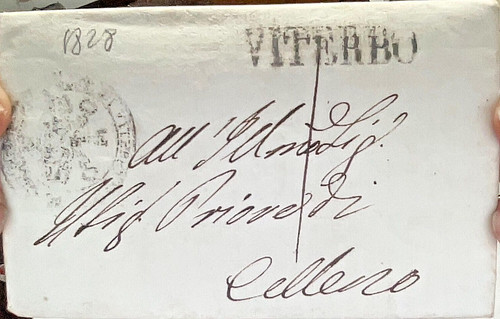 1828
VITERBO
All' Ill.mo Sig.
Il Sig. Priore di
Celleno